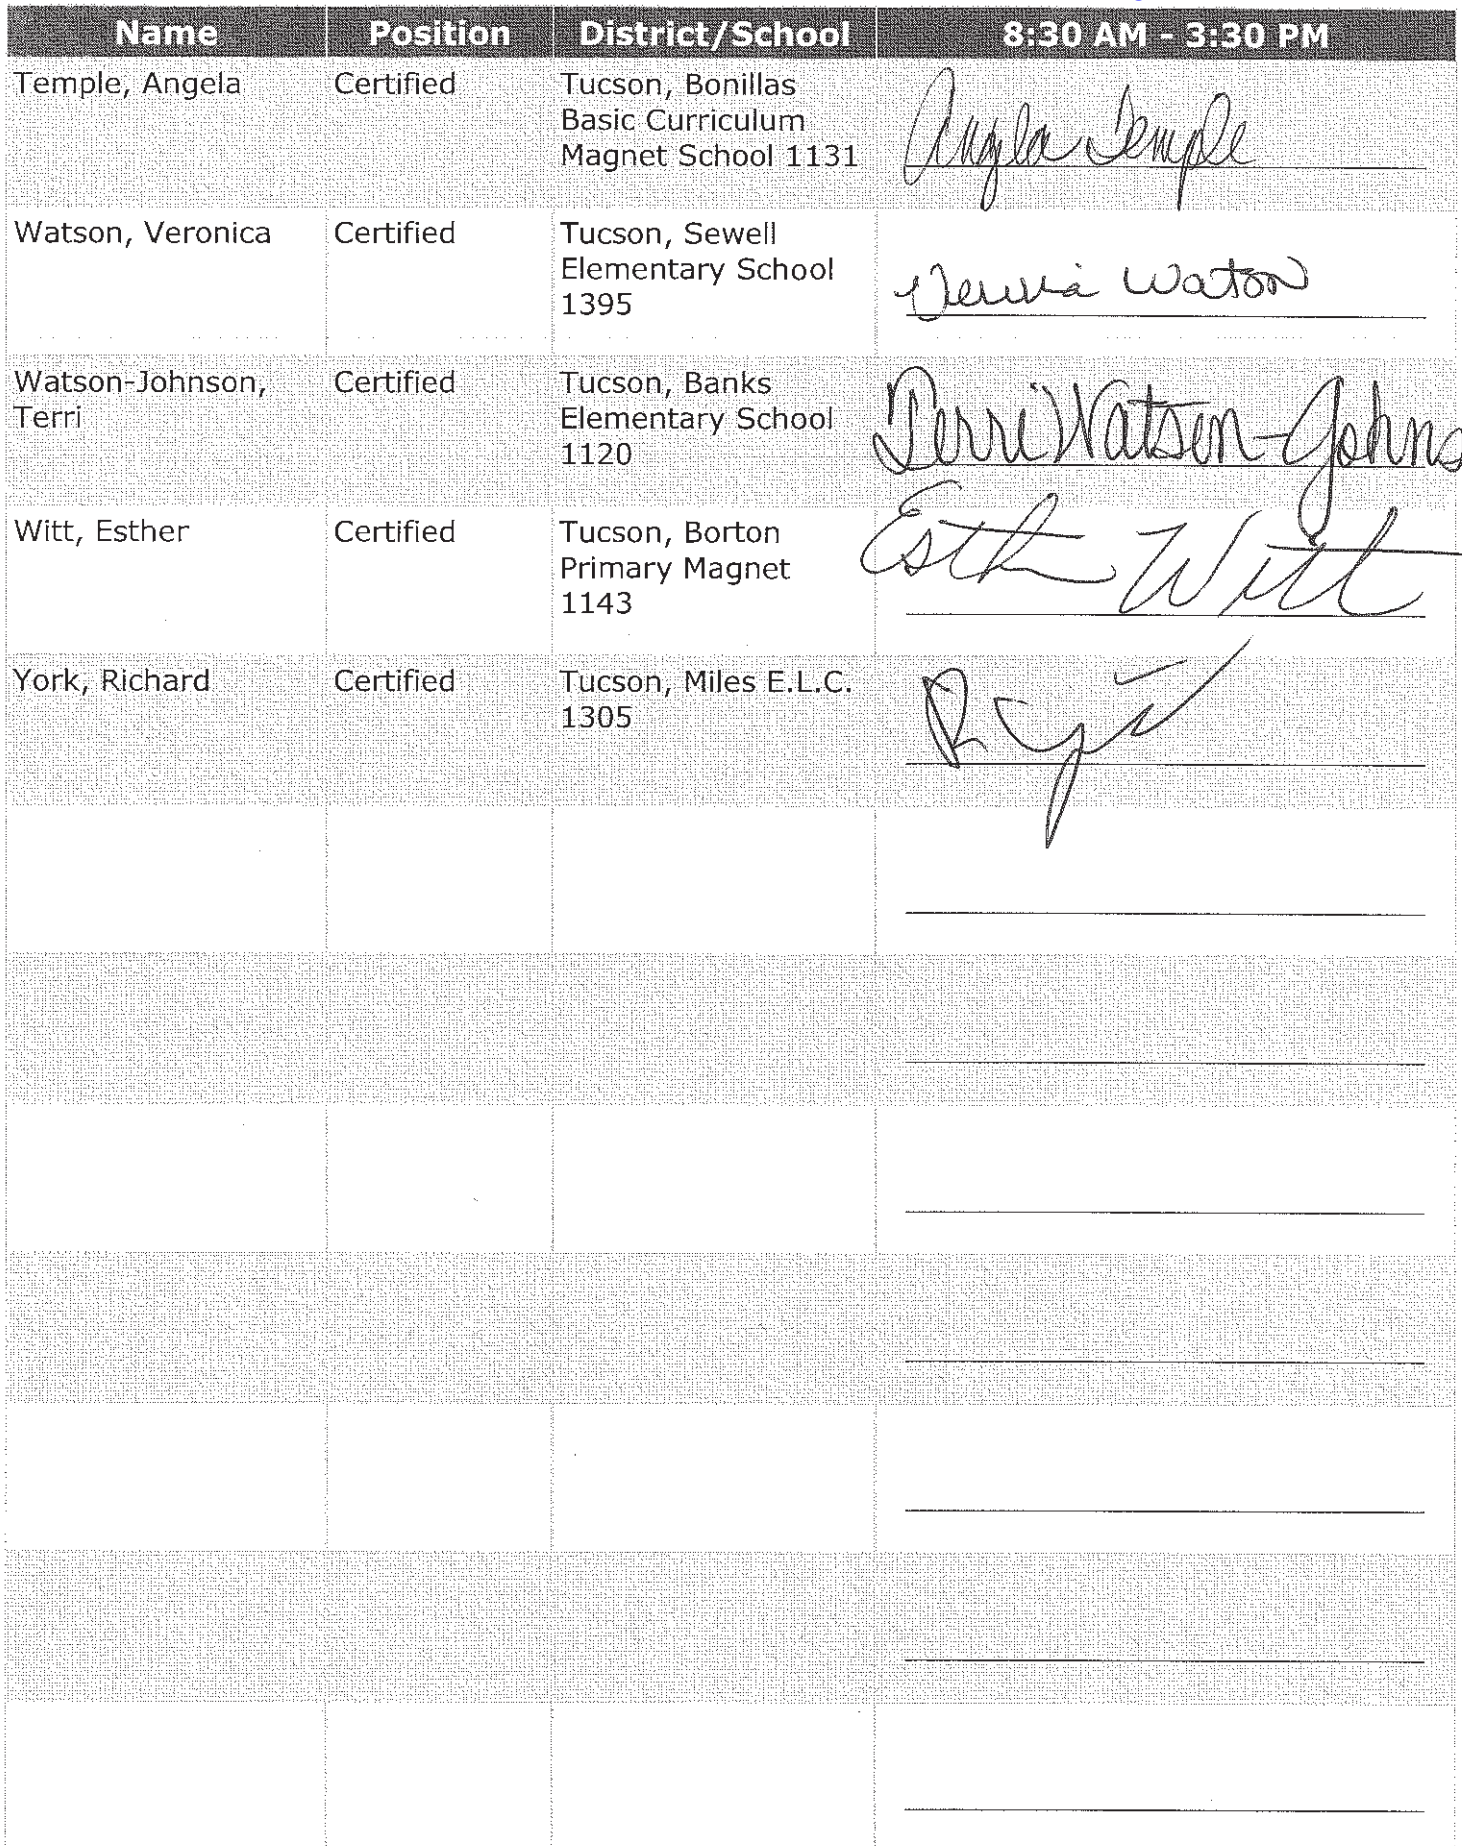 Name Position District/School 8:30 AM - 3:30 PM
Temple, Angela Certified Tucson, Bonillas
Basic Curriculum
Magnet School 1131 Angela Temple
Watson, Veronica Certified Tucson, Sewell
Elementary School
1395 Watson
Watson-Johnson, Certified Tucson, Banks
Terri Elementary School
1120 Terri Watson-Johns
Witt, Esther Certified Tucson, Borton
Primary Magnet
1143 Esther Witt
York, Richard Certified Tucson, Miles E.L.C.
1305